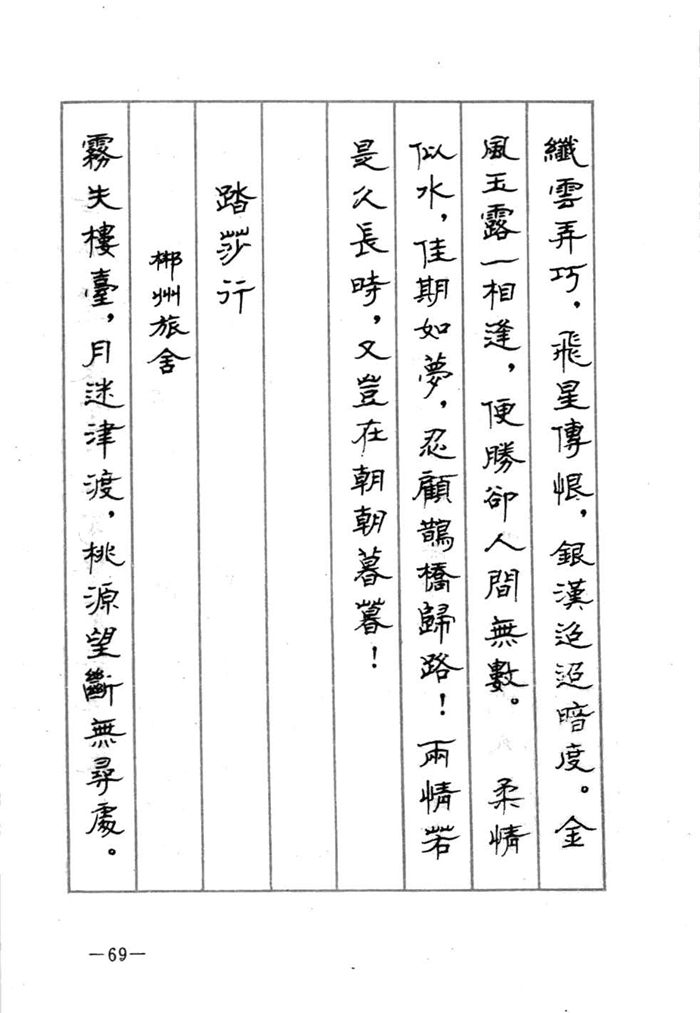 纖雲弄巧，飛星傳恨，銀漢迢迢暗度。金
風玉露一相逢，便勝卻人間無數。　柔情
似水，佳期如夢，忍顧鵲橋歸路！兩情若
是久長時，又豈在朝朝暮暮！
踏莎行
郴州旅舍
霧失樓臺，月迷津渡，桃源望斷無尋處。
—69—